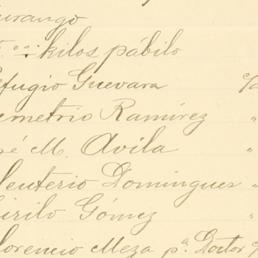 urango
kilos pábilo
efugio Guevara
emetrio Ramírez "
sé M. Avila "
leuterio Domingues "
irilo Gómez "
lorencio Meza pª Doctor